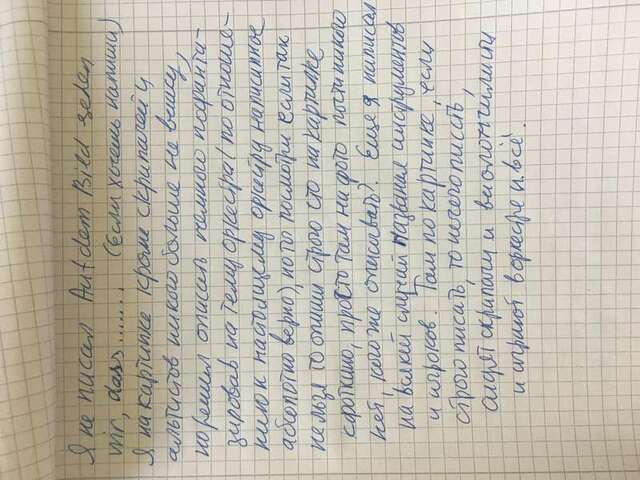 Я не писал Auf dem Bild sehen
wir, dass....... (Если хочешь напиши)
Я на картинке кроме скрипачей и
альтистов никого больше не вижу,
но решил описать немного пофанти-
зировав на тему оркестра (по отноше-
нию к настоящему оркестру написанное
абсолютно верно), но ты посмотри если так
нельзя то опиши строго сто на картинке
сфоткано, просто там на фото почти никого
нет, кого же описывать?. Еще я написал
на всякий случай названая инструментов
и игроков. Там по картинке, если
строго писать, то нечего писать,
сидят скрипачи и виолончилисты
и играют в оркестре и всё.